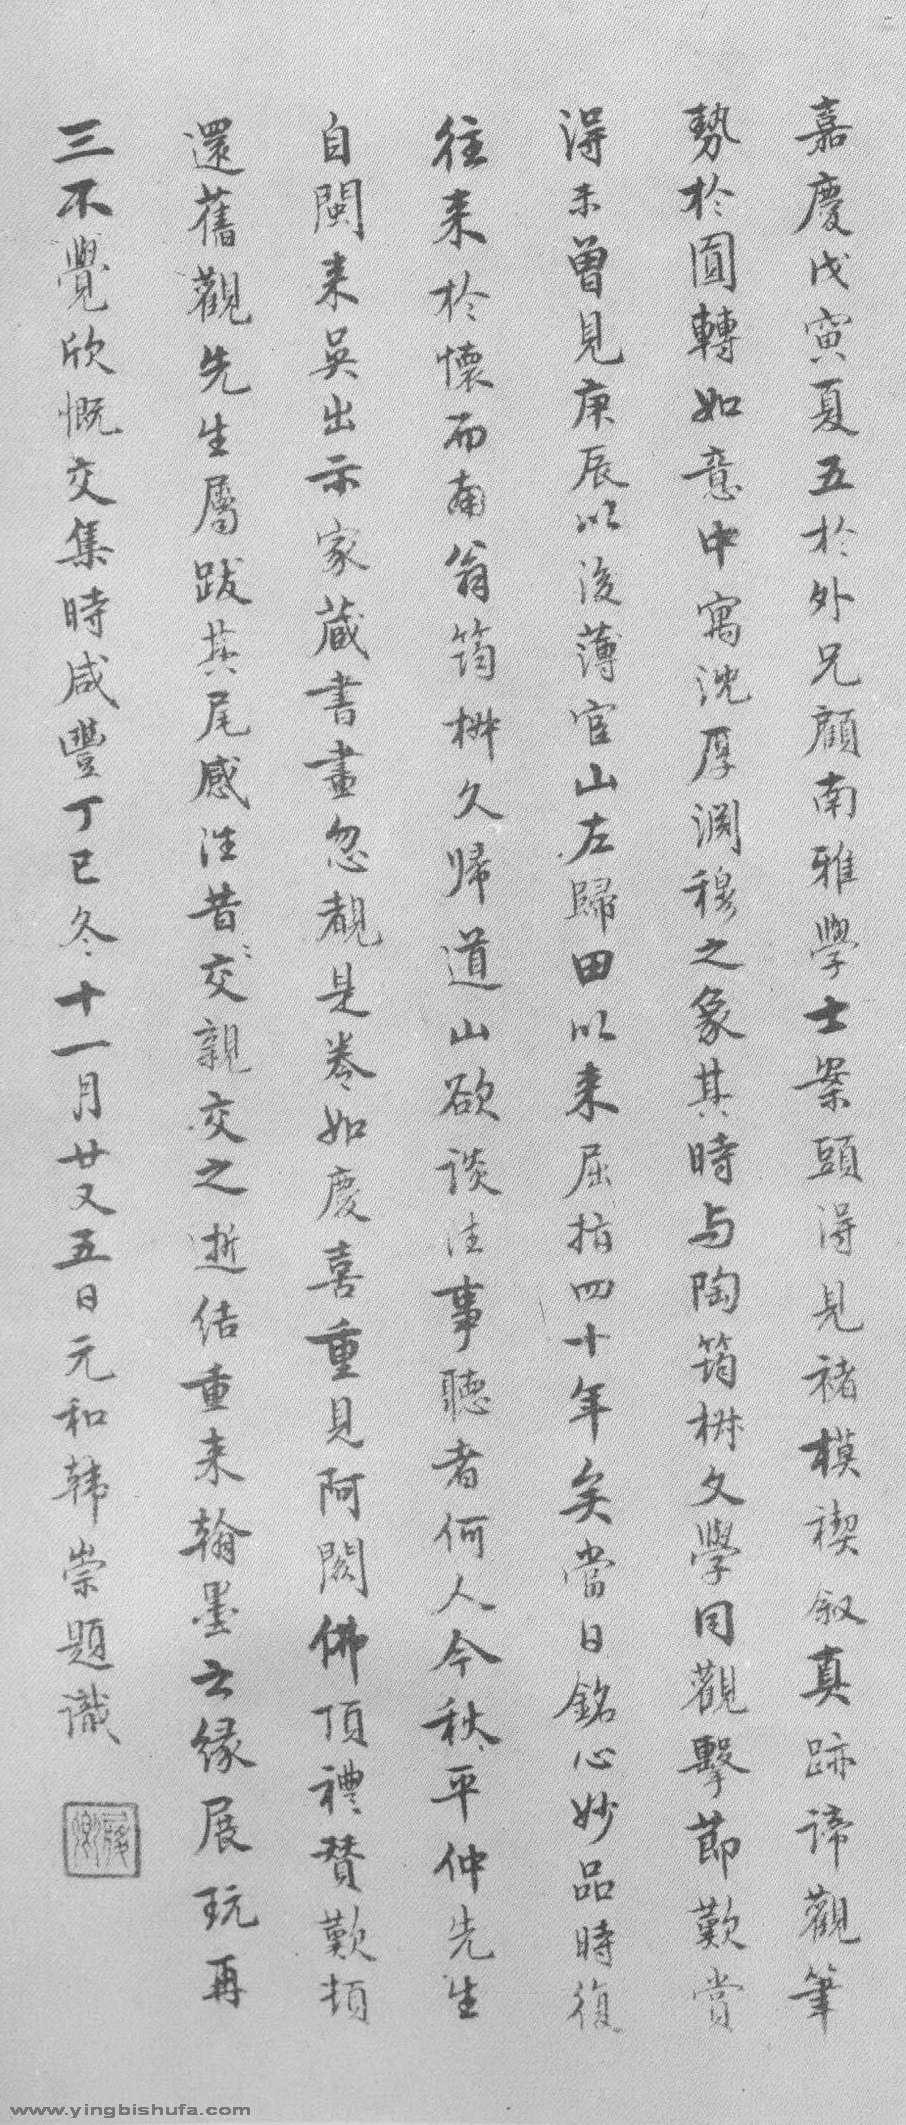 嘉慶戊寅夏五於外兄顧南雅學士案頭得見褚模禊叙真跡諦觀筆
勢於圓轉如意中寓沈厚淵穆之象其時与陶筠椒文學同觀擊節歎賞
得未曾見庚辰以後薄官山左歸田以来屈指四十年矣當日銘心妙品時復
往来於懷而南翁筠椒久歸道山欲談往事聽者何人今秋平仲先生
自閩来吳出示家藏書畫忽覩是卷如慶喜重見阿閦佛頂禮贊歎頓
還舊觀先生屬跋其尾感往昔交親交之逝结重来翰墨之緣展玩再
三不覺欣慨交集時咸豐丁巳冬十一月廿又五日元和韩崇題識
www.yingbishufa.com